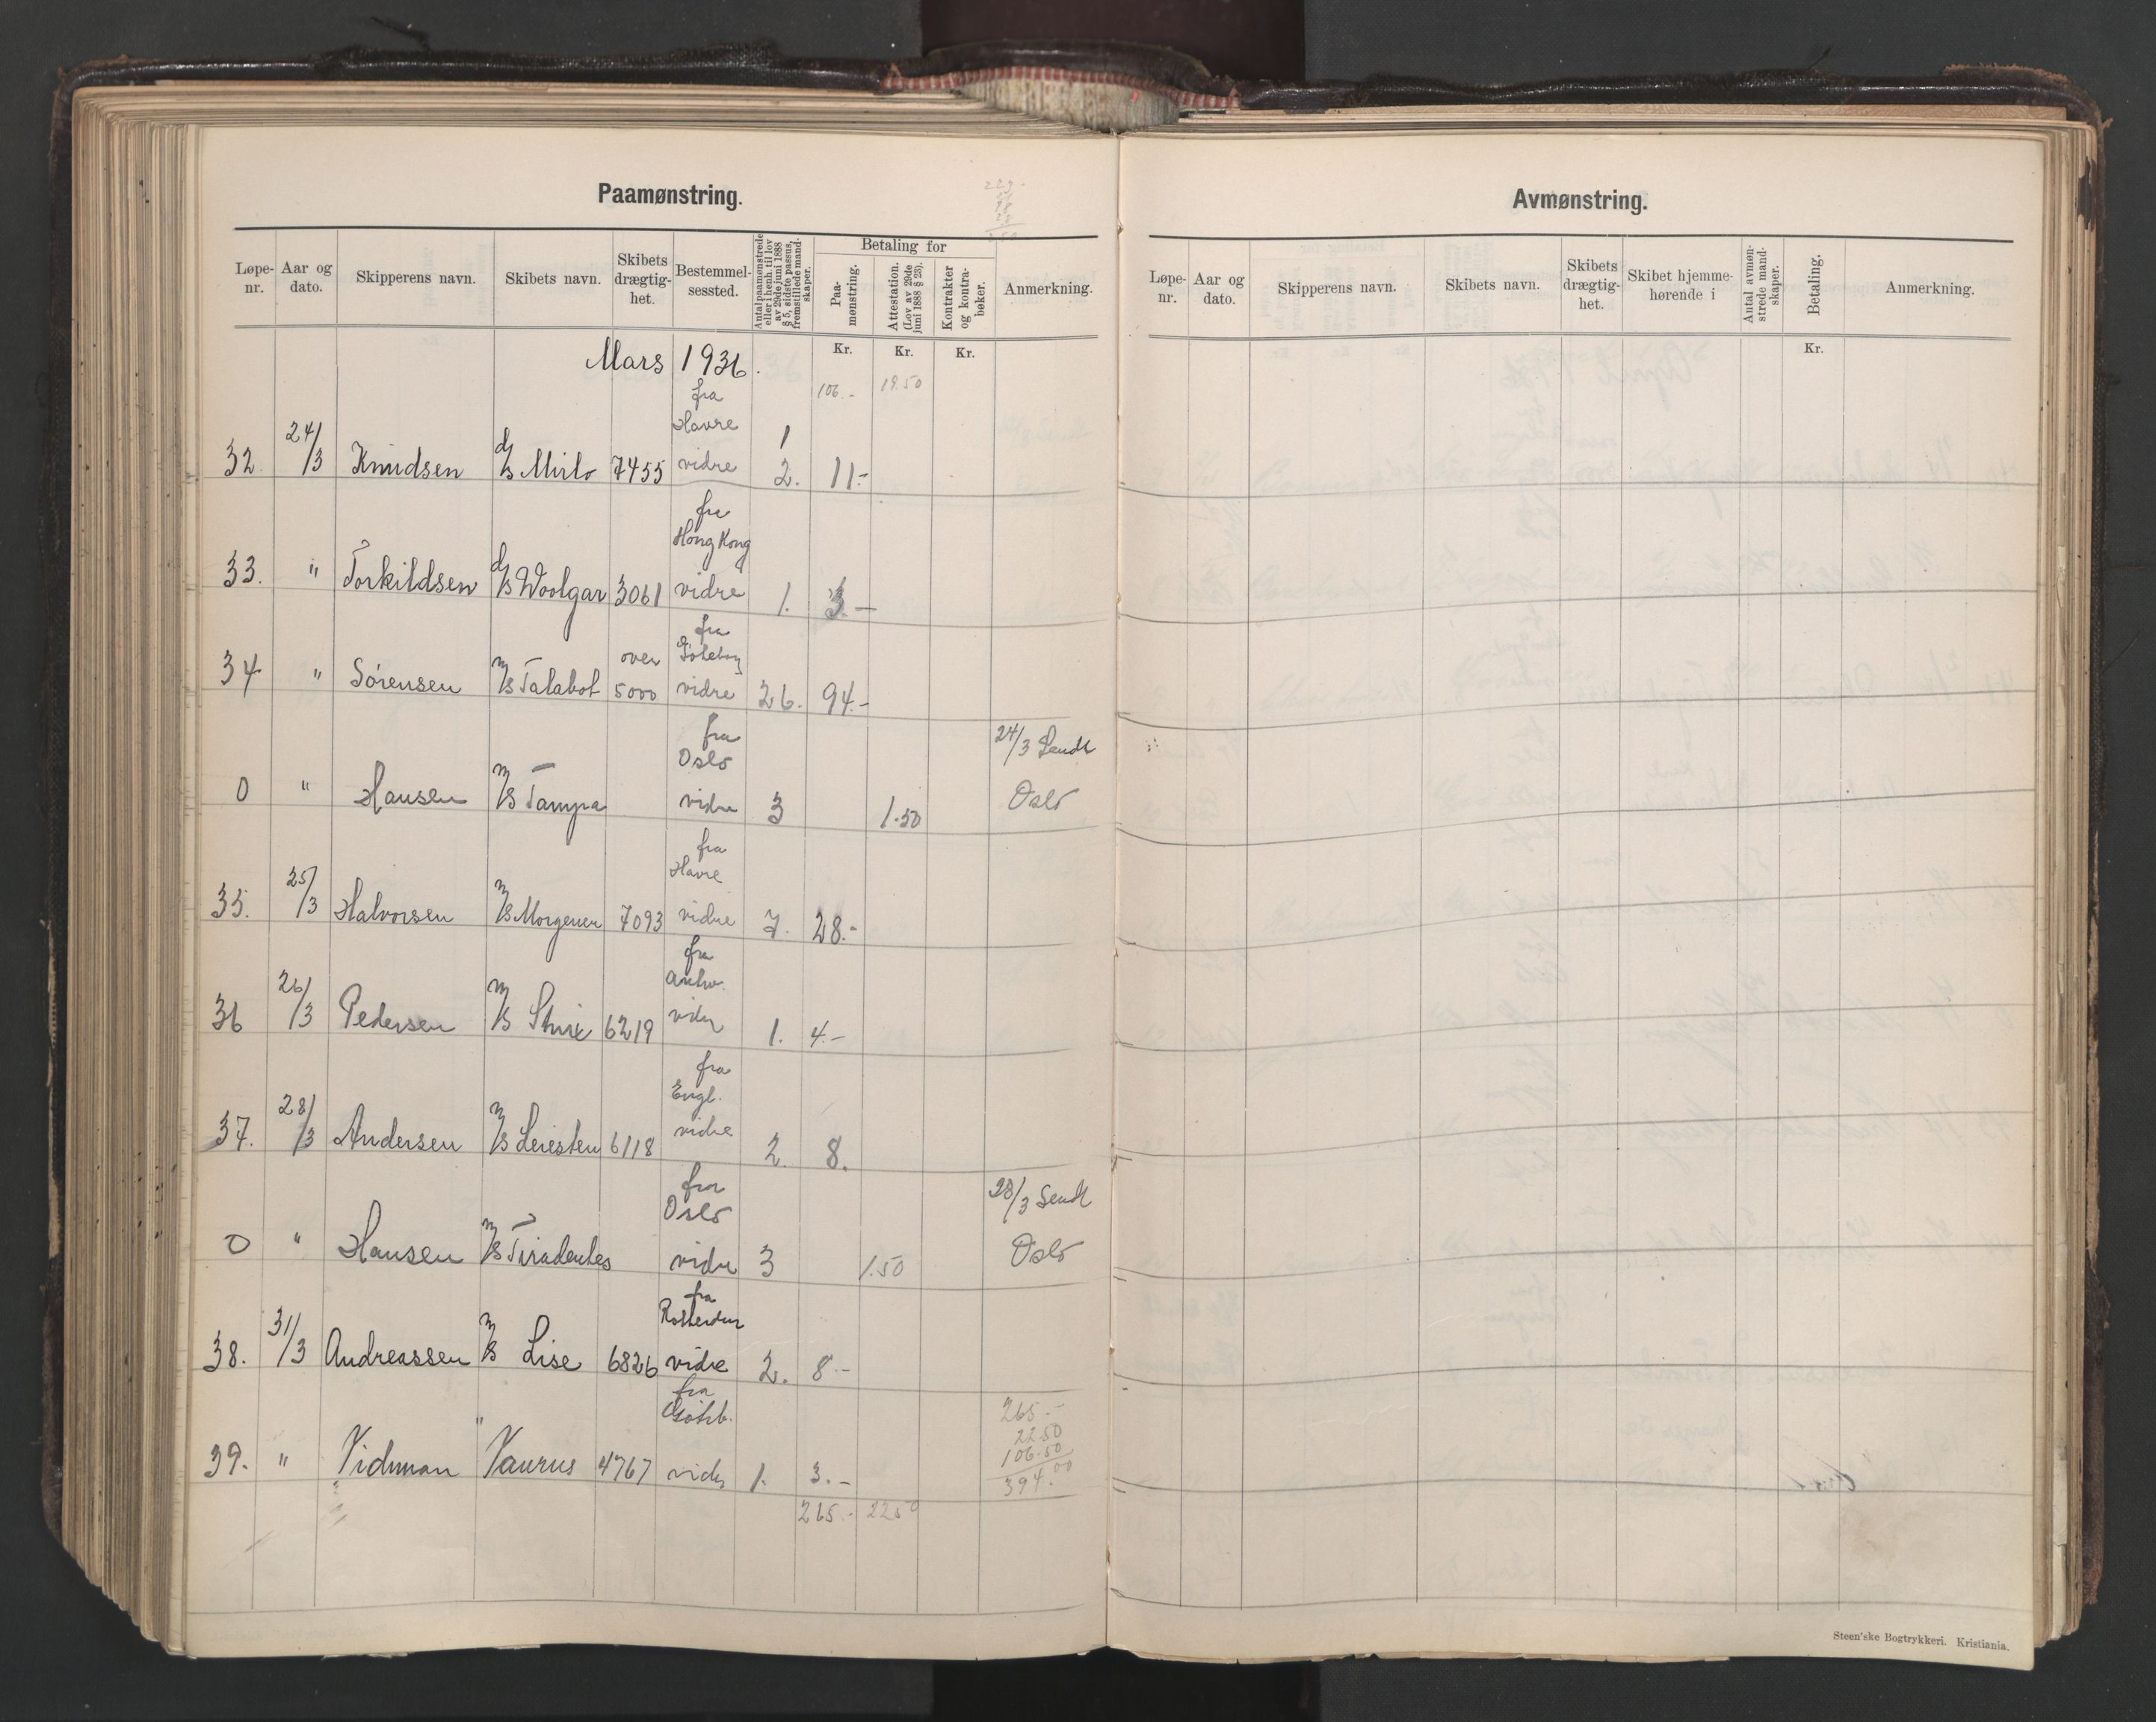 Paamønstring.
Løpe-nr. Aar og dato. Skipperens navn. Skibets navn. Skibets drægtig-het. Bestemmel-sessted. Antal paamønstrede eller i henh. til lov av 29de juni 1888 § 5, sidste passus, fremstillede mand-skaper. Betaling for Paa-mønstring. Attestation. (Lov av 29de juni 1888 § 23). Kontrakter og kontra-bøker. Anmerkning.
Kr. Kr. Kr.
Mars 1936.
106.- 19.50
fra
Havre 1
32 24/3 Knudsen d/s Mirlo 7455 vidre 2. 11.-
fra
Hong Kong
33. " Torkildsen d/s Woolgar 3061 vidre 1. 3.-
fra
over Göteborg
34 " Sørensen m/s Talabot 5000 vidre 26. 94.-
fra
Oslo 24/3 Sendt
0 " Hansen m/s Tampa vidre 3 1.50 Oslo
fra
Havre
35. 25/3 Halvorsen m/s Morgenen 7093 vidre 7. 28.-
fra
Antw.
36 26/3 Pedersen m/s 6219 vidre 1. 4.-
fra
Engl.
37. 28/3 Andersen m/s Leiesten 6118 vidre 2. 8.
fra
Oslo 28/3 Sendt
0 " Hansen m/s Tiradentes vidre 3 1.50 Oslo
fra
Rotterdam
38. 31/3 Andreassen m/s Lise 6826 vidre 2. 8.-
fra
Götb. 265.-
" 22.50
106.50
39. " Vidnman Taurus 4767 vidre 1. 3.- 394.00
265.- 22.50
Avmønstring.
Løpe-nr. Aar og dato. Skipperens navn. Skibets navn. Skibets drægtig-het. Skibet hjemme-hørende i Antal avmøn-strede mand-skaper. Betaling. Anmerkning.
Kr.
Steen'ske Bogtrykkeri. Kristiania.